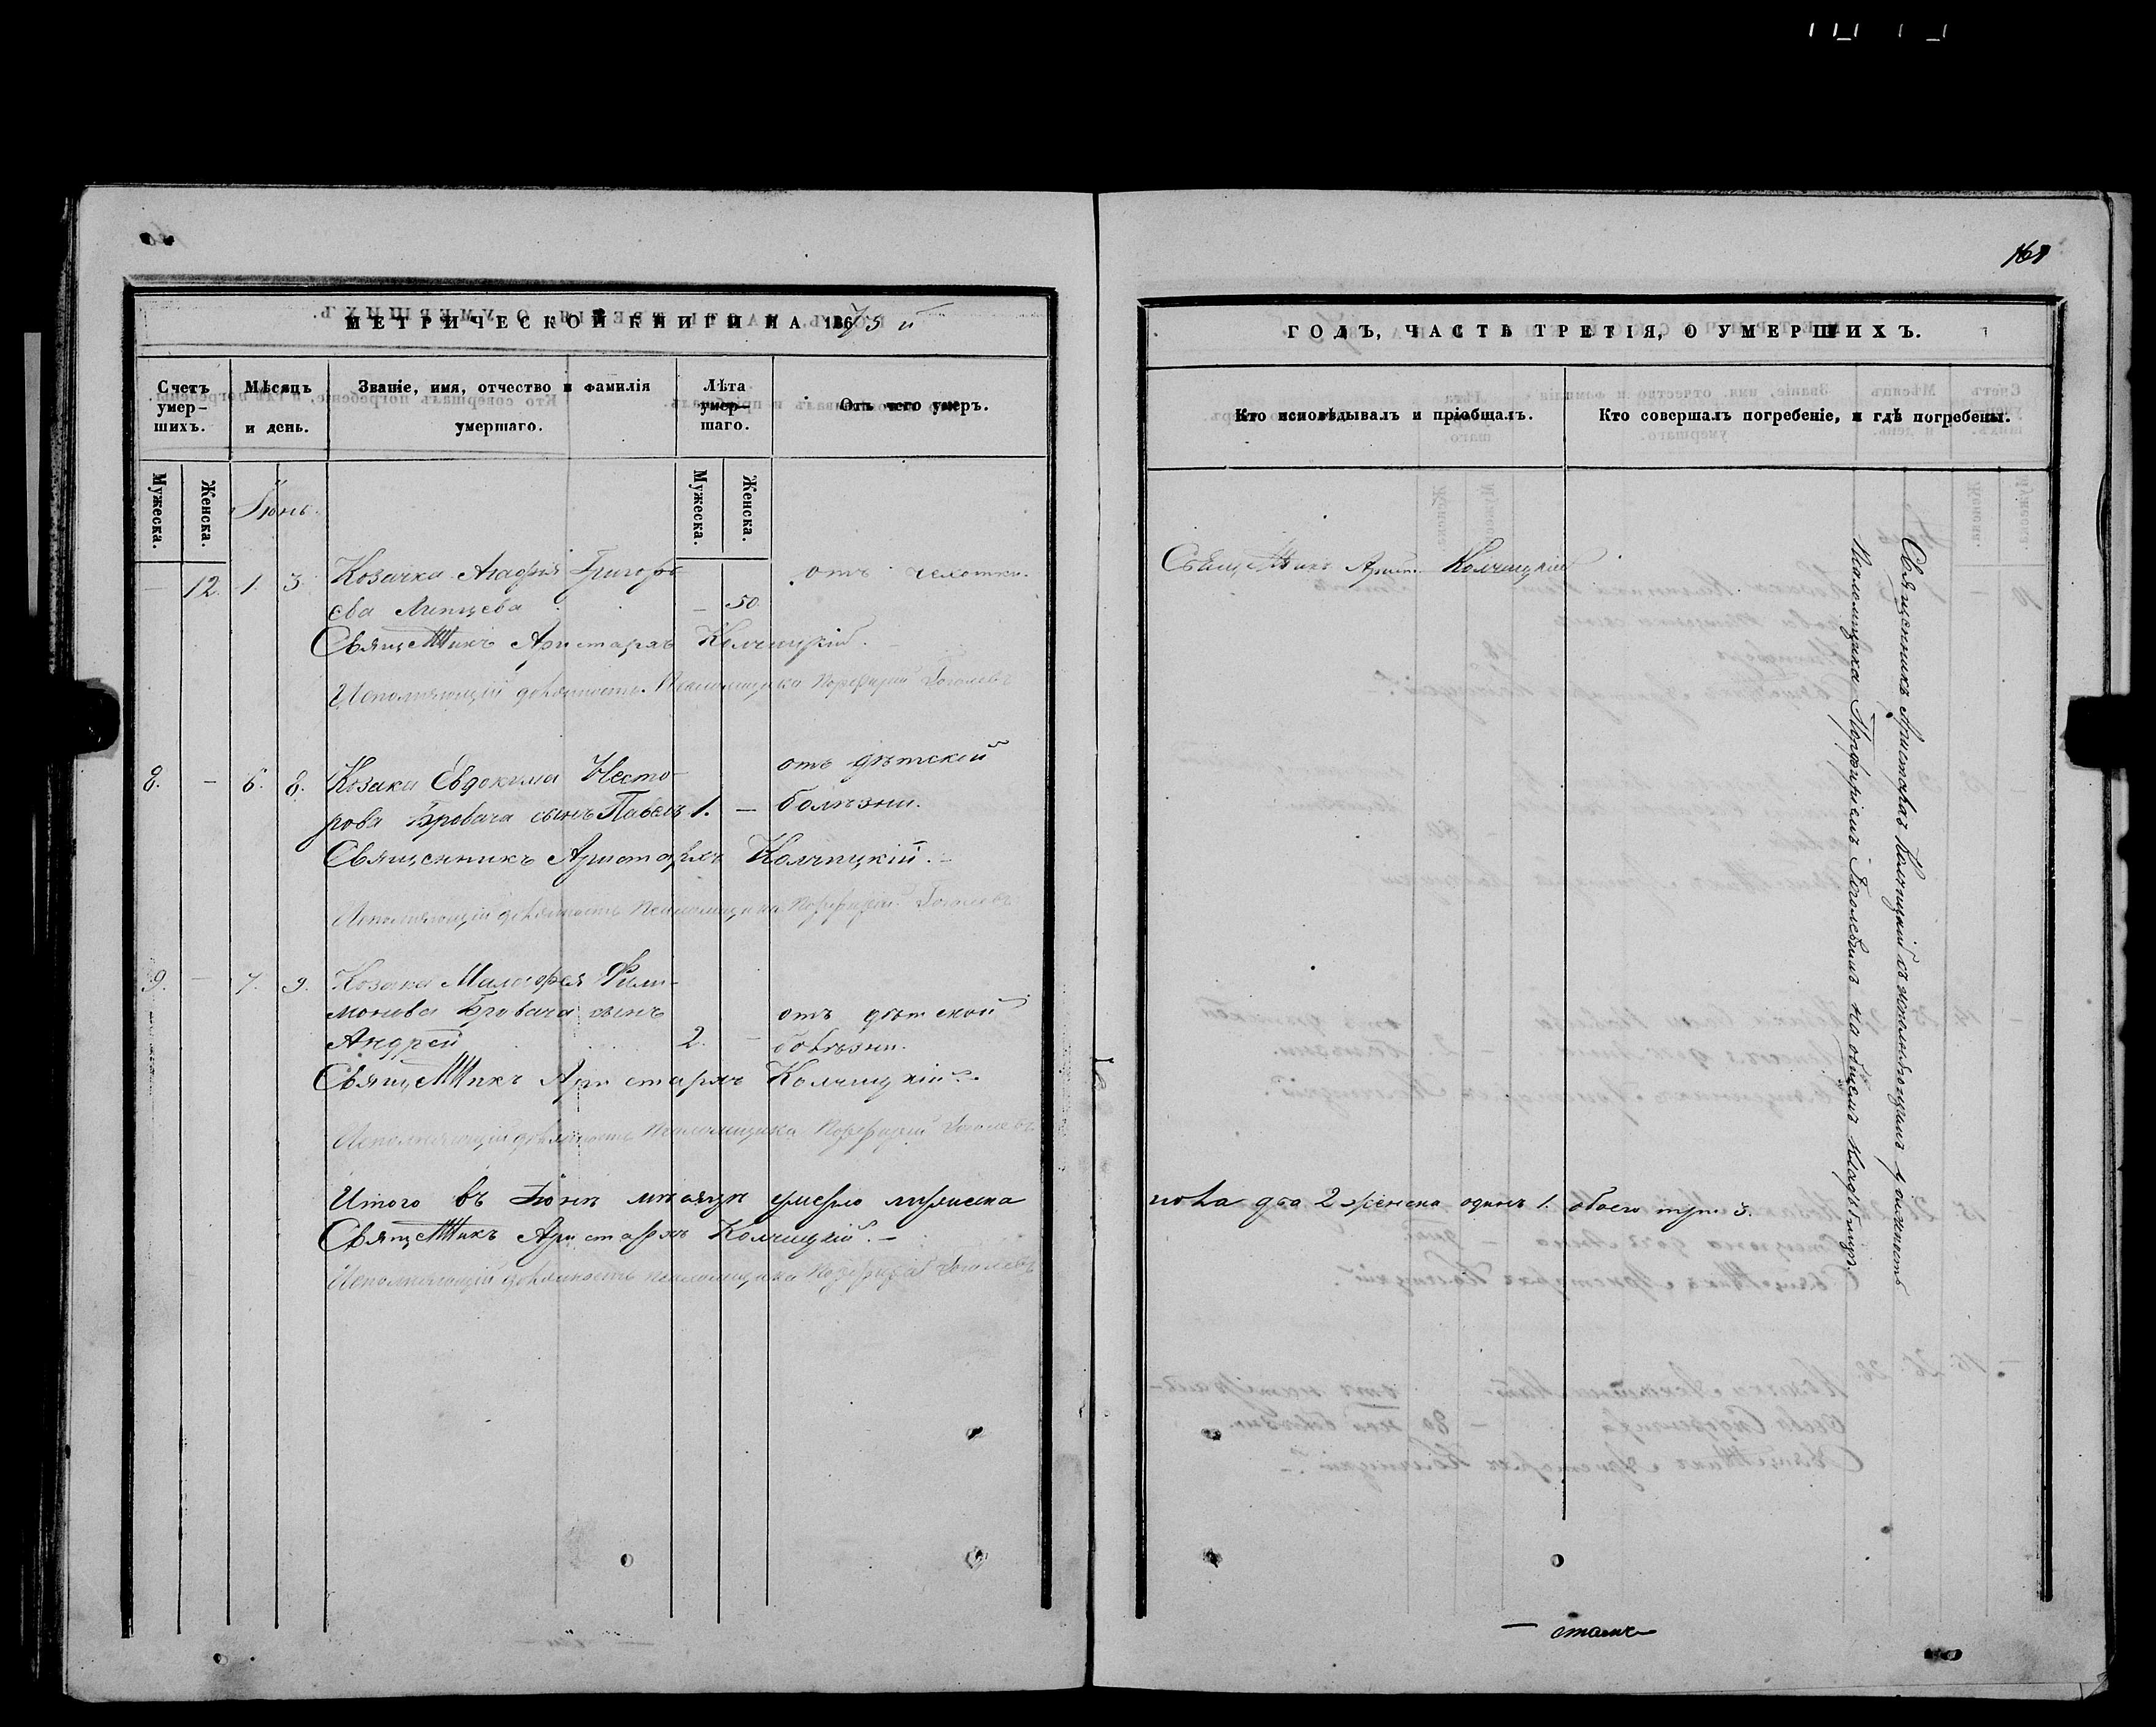 МЕТРИЧЕСКОЙ КНИГИ НА 1875 й
Счетъ умер-
шихъ.
Мѣсяцъ
и день.
Званіе, имя, отчество и фамилія
умершаго.
Лѣта
умер-
шаго.
Отъ чего умеръ.
Мужеска.
Женска.
Мужеска.
Женска.
Іюнь.
— 12. 1. 3. Козачка Агафія Григорь-
ева Липцева — 50. отъ чехотки.
Священникъ Аристархъ Колчицкій. —
Исполняющій должность Псаломщика Порфирій Гоголевъ
8. — 6. 8. Козака Евдокима Несто- отъ дѣтской
рова Бровача сынъ Павелъ 1. — болѣзни.
Священникъ Аристархъ Колчицкій. —
Исполняющій должность Псаломщика Порфирій Гоголевъ
9. — 7. 9. Козака Фили-
монова Бровача сынъ отъ дѣтской
Андрей 2. — болѣзни.
Священникъ Аристархъ Колчицкій. —
Исполняющій должность Псаломщика Порфирій Гоголевъ
Итого въ Іюнѣ мѣсяцѣ умерло мужеска
Священникъ Аристархъ Колчицкій. —
Исполняющій должность псаломщика Порфирій Гоголевъ
ГОДЪ, ЧАСТЬ ТРЕТІЯ, О УМЕРШИХЪ.
Кто исповѣдывалъ и пріобщалъ.
Кто совершалъ погребеніе, и гдѣ погребены.
Священникъ Арист. Колчицкій
Священникъ Аристархъ Колчицкій съ исполняющимъ должность
Псаломщика Порфиріемъ Гоголевымъ на общемъ кладбищѣ.
пола два 2 женска одинъ 1. обоего три 3.